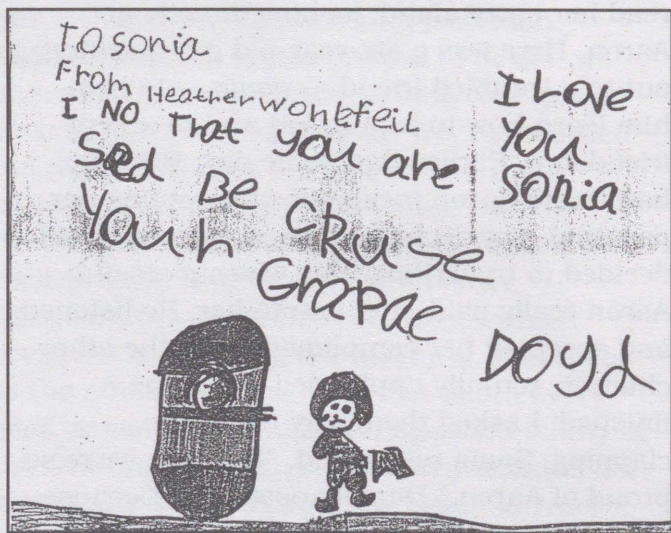 TO sonia
From Heather wonkfeil
I NO That you are
Sed Be CRuse
Your Grapae Doyd
I Love
You
Sonia